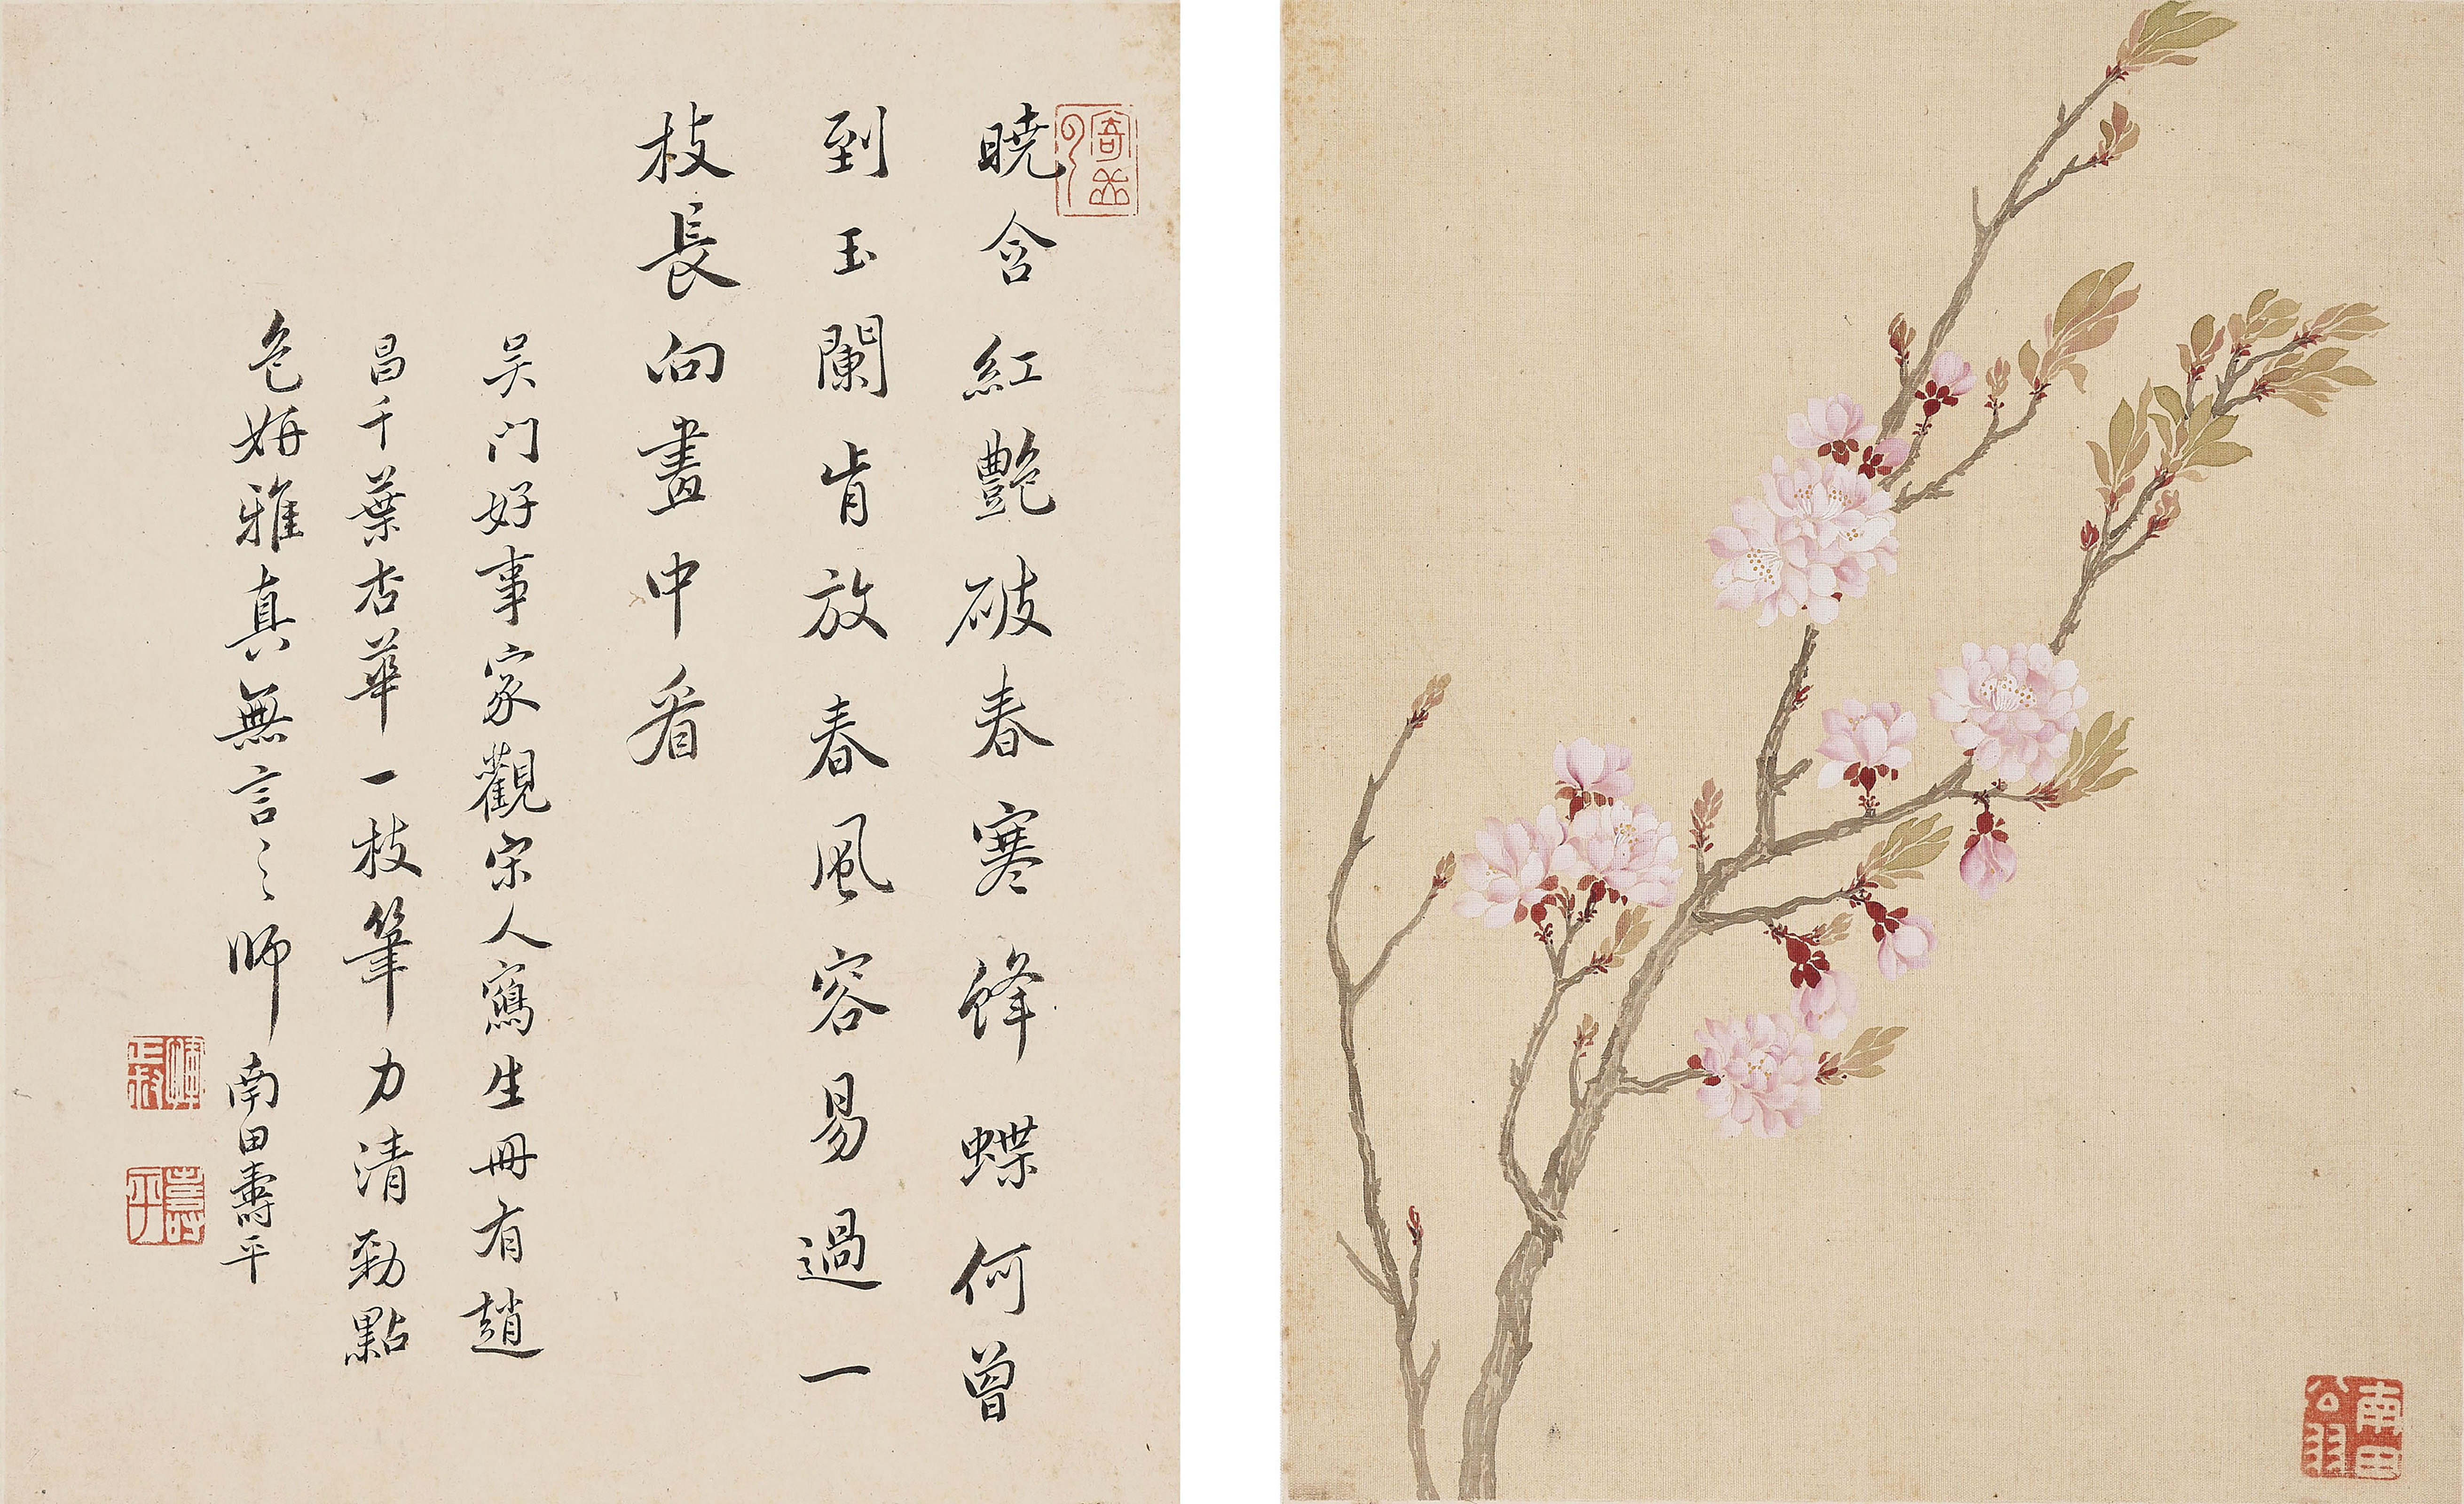 曉含紅艷破春寒蜂蝶何曾
到玉闌肯放春風容易過一
枝長向畫中看
吴门好事家觀宋人寫生冊有趙
昌千葉杏華一枝筆力清勁點
色妍雅真無言之師南田壽平
壽平
南田公羽